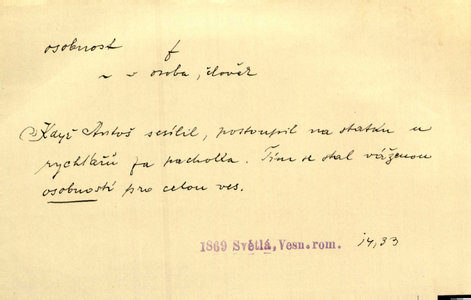 osobnost f
~ v osoba, člověk
Když Antoš sesílil, postoupil na statku u
rychtářů za pacholka. Tím se stal váženou
osobností pro celou ves.
1869 Světlá, Vesn. rom. 14,33